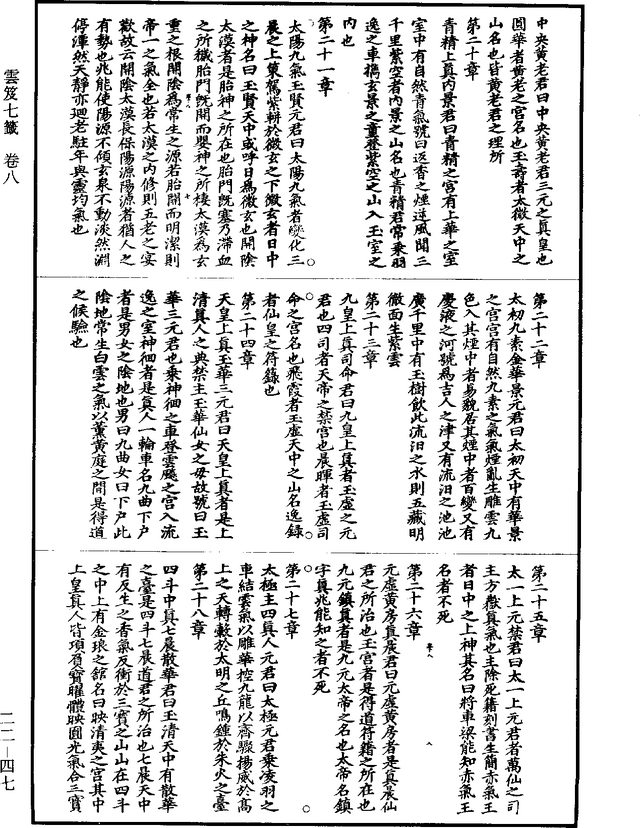 雲笈七籤 卷八
二二—四七
中央黃老君曰中央黃老君三元之真皇也
圓華者黃老之宮名也玉壽者太微天中之
山名也皆黃老君之理所
第二十章
青精上真內景君曰青精之宮有上華之室
室中有自然青氣號曰返香之煙逆風聞三
千里紫空者內景之山名也青精君常乘羽
逸之車攜玄景之童登紫空之山入玉室之
內也
第二十一章
太陽九氣玉賢元君曰太陽九氣者變化三
晨之上策駕紫軿於微玄之下微玄者日中
之神名曰玉賢天中或呼日為微玄也開陰
太漠者是胎神之所在也胎門既塞乃滯血
之所穢胎門既開而嬰神之所棲太漠為玄
重之根開陰為常生之源若胎開而明潔則
帝一之氣全也若太漠之內修則五老之宴
歡故云開陰太漠長保陽源陽源者猶人之
有勢也兆能使陽源不傾玄泉不動淡然淵
停渾然天靜亦迴老駐年與靈均氣也
第二十二章
太初九素金華景元君曰太初天中有華景
之宮宮有自然九素之氣氣煙亂生雕雲九
色入其煙中者易貌居其煙中者百變又有
慶液之河號為吉人之津又有流汨之池池
廣千里中有玉樹飲此流汨之水則五藏明
徹面生紫雲
第二十三章
九皇上真司命君曰九皇上真者玉虛之元
君也四司者天帝之禁宮也晨暉者玉虛司
命之宮名也飛霞者玉虛天中之山名逸錄
者仙皇之符籙也
第二十四章
天皇上真玉華三元君曰天皇上真者是上
清真人之典禁主玉華仙女之母故號曰玉
華三元君也乘神徊之車登雲飈之宮入流
逸之室神徊者是真人一輪車名九曲下戶
者是男女之陰地也男曰九曲女曰下戶此
陰地常生白雲之氣以薰黃庭之間是得道
之候驗也
第二十五章
太一上元禁君曰太一上元君者萬仙之司
主方嶽真氣也主除死籍刻書生簡赤氣王
者日中之上神其名曰將車梁能知赤氣王
名者不死
第二十六章
元虛黃房真晨君曰元虛黃房者是真晨仙
君之所治也玉宮者是得道符籍之所在也
九元鎮真者是九元太帝之名也太帝名鎮
字真兆能知之者不死
第二十七章
太極主四真人元君曰太極元君乘凌羽之
車結雲氣以雕華控九龍以齊驟揚威於高
上之天轉轂於太明之丘鳴鍾於朱火之臺
第二十八章
四斗中真七晨散華君曰玉清天中有散華
之臺是四斗七晨道君之所治也七晨天中
有反生之香氣反衝於三寶之山山在四斗
之中上有金琅之館名曰映清爽之宮其中
上皇真人皆項負寶曜體映圓光氣合三寶